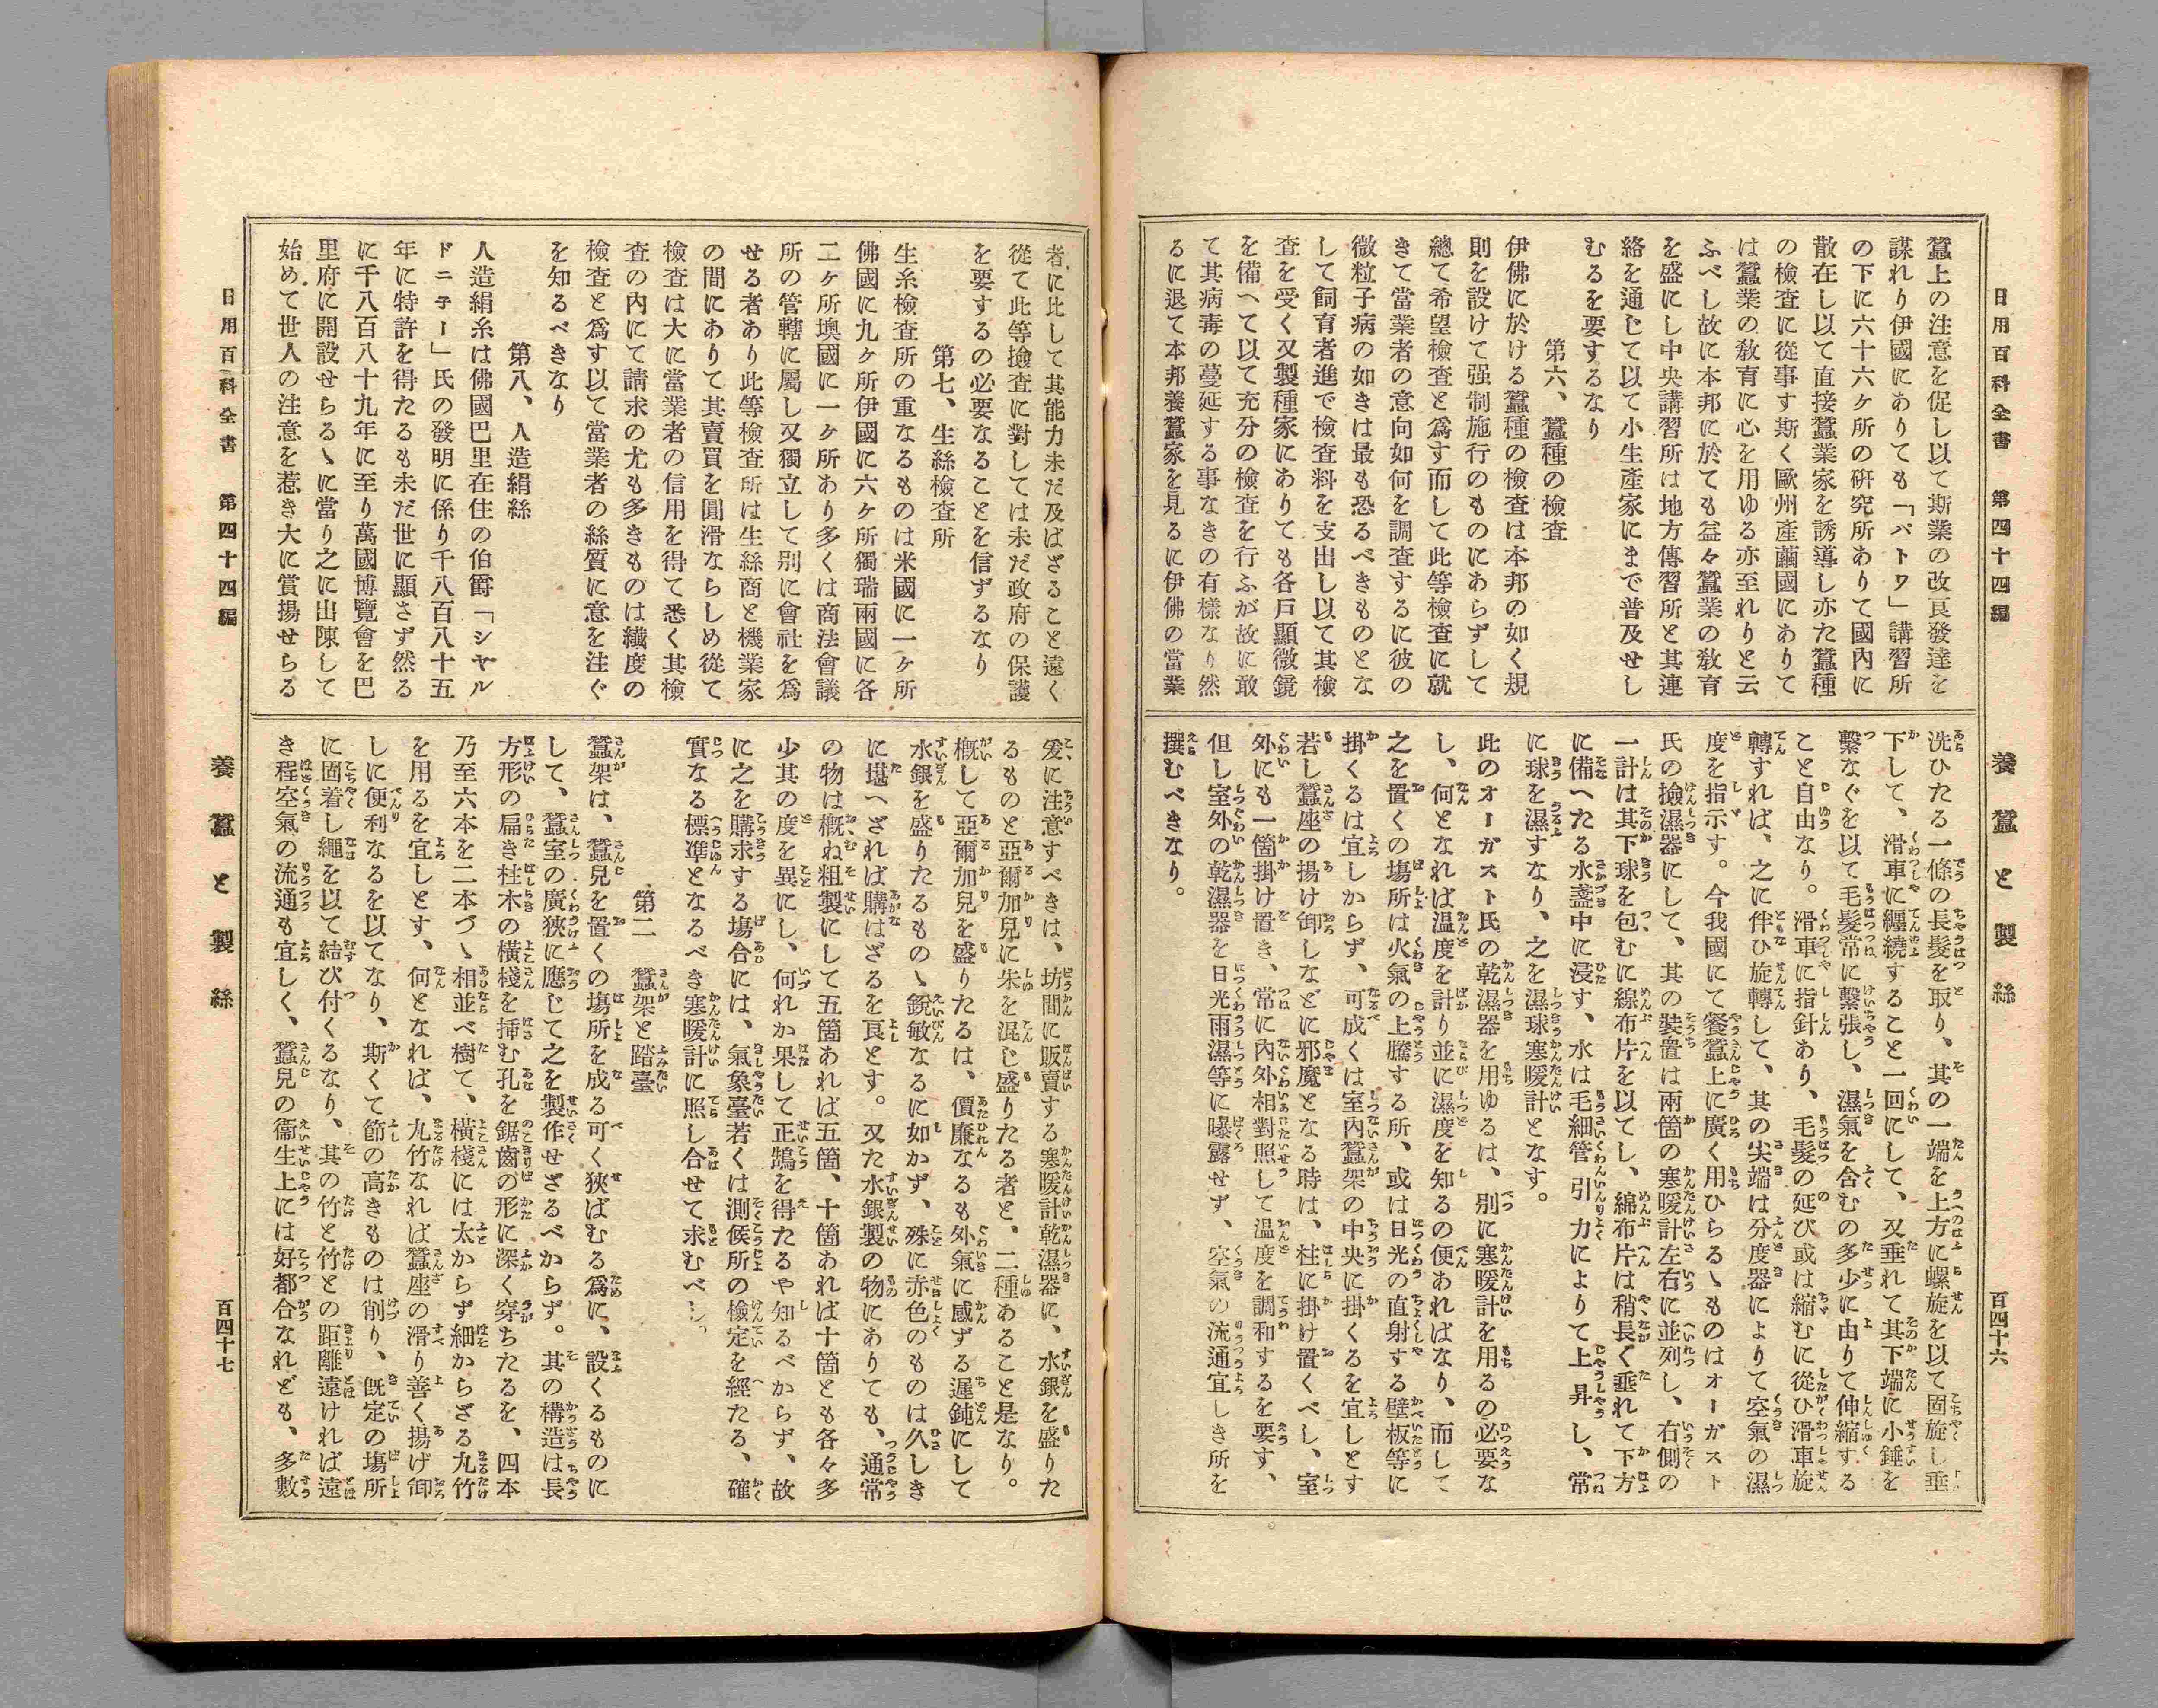 日用百科全書　第四十四編
養蠶と製絲
百四十六
蠶上の注意を促し以て斯業の改良發達を
謀れり伊國にありても「パトワ」講習所
の下に六十六ヶ所の硏究所ありて國內に
散在し以て直接蠶業家を誘導し亦た蠶種
の檢査に從事す斯く歐州產繭國にありて
は蠶業の敎育に心を用ゆる亦至れりと云
ふべし故に本邦に於ても益々蠶業の敎育
を盛にし中央講習所は地方傳習所と其連
絡を通じて以て小生產家にまで普及せし
むるを要するなり
第六、蠶種の檢査
伊佛に於ける蠶種の檢査は本邦の如く規
則を設けて强制施行のものにあらずして
總て希望檢査と爲す而して此等檢査に就
きて當業者の意向如何を調査するに彼の
微粒子病の如きは最も恐るべきものとな
して飼育者進で檢査料を支出し以て其檢
査を受く又製種家にありても各戶顯微鏡
を備へて以て充分の檢査を行ふが故に敢
て其病毒の蔓延する事なきの有樣なり然
るに退て本邦養蠶家を見るに伊佛の當業
洗ひたる一條の長髮を取り、其の一端を上方に螺旋を以て固旋し垂
下して、滑車に纒繞すること一回にして、又垂れて其下端に小錘を
繋なぐを以て毛髮常に繋張し、濕氣を含むの多少に由りて伸縮する
こと自由なり。滑車に指針あり、毛髮の延び或は縮むに從ひ滑車旋
轉すれば、之に伴ひ旋轉して、其の尖端は分度器によりて空氣の濕
度を指示す。今我國にて餐蠶上に廣く用ひらるゝものはオーガスト
氏の撿濕器にして、其の裝置は兩箇の寒暖計左右に並列し、右側の
一計は其下球を包むに綿布片を以てし、綿布片は稍長く垂れて下方
に備へたる水盞中に浸す、水は毛細管引力によりて上昇し、常
に球を濕すなり、之を濕球寒暖計となす。
此のオーガスト氏の乾濕器を用ゆるは、別に寒暖計を用るの必要な
し、何となれば溫度を計り並に濕度を知るの便あればなり、而して
之を置くの塲所は火氣の上騰する所、或は日光の直射する壁板等に
掛くるは宜しからず、可成くは室內蠶架の中央に掛くるを宜しとす
若し蠶座の揚げ卸しなどに邪魔となる時は、柱に掛け置くべし、室
外にも一箇掛け置き、常に內外相對照して溫度を調和するを要す、
但し室外の乾濕器を日光雨濕等に曝露せず、空氣の流通宜しき所を
撰むべきなり。
者に比して其能力未だ及ばざること遠く
從て此等撿査に對しては未だ政府の保護
を要するの必要なることを信ずるなり
第七、生絲檢査所
生糸檢査所の重なるものは米國に一ヶ所
佛國に九ヶ所伊國に六ヶ所獨瑞兩國に各
二ヶ所墺國に一ヶ所あり多くは商法會議
所の管轄に屬し又獨立して別に會社を爲
せる者あり此等檢査所は生絲商と機業家
の間にありて其賣買を圓滑ならしめ從て
檢査は大に當業者の信用を得て悉く其檢
査の內にて請求の尤も多きものは纎度の
檢査と爲す以て當業者の絲質に意を注ぐ
を知るべきなり
第八、人造絹絲
人造絹糸は佛國巴里在住の伯爵「シヤル
ドニ子ー」氏の發明に係り千八百八十五
年に特許を得たるも未だ世に顯さず然る
に千八百八十九年に至り萬國博覽會を巴
里府に開設せらるゝに當り之に出陳して
始めて世人の注意を惹き大に賞揚せらる
爰に注意すべきは、坊間に販賣する寒暖計乾濕器に、水銀を盛りた
るものと亞爾加兒に朱を混じ盛りたる者と、二種あること是なり。
槪して亞爾加兒を盛りたるは、價廉なるも外氣に感ずる遲鈍にして
水銀を盛りたるものゝ銳敏なるに如かず、殊に赤色のものは久しき
に堪へざれば購はざるを良とす。又た水銀製の物にありても、通常
の物は槪ね粗製にして五箇あれば五箇、十箇あれば十箇とも各々多
少其の度を異にし、何れか果して正鵠を得たるや知るべからず、故
に之を購求する塲合には、氣象臺若くは測候所の檢定を經たる、確
實なる標準となるべき寒暖計に照し合せて求むべし。
第二　蠶架と踏臺
蠶架は、蠶兒を置くの塲所を成る可く狹ばむる爲に、設くるものに
して、蠶室の廣狹に應じて之を製作せざるべからず。其の構造は長
方形の扁き柱木の橫棧を挿む孔を鋸齒の形に深く穿ちたるを、四本
乃至六本を二本づゝ相並べ樹て、橫棧には太からず細からざる丸竹
を用るを宜しとす、何となれば、丸竹なれば蠶座の滑り善く揚げ卸
しに便利なるを以てなり、斯くて節の高きものは削り、旣定の塲所
に固着し繩を以て結び付くるなり、其の竹と竹との距離遠ければ遠
き程空氣の流通も宜しく、蠶兒の衞生上には好都合なれども、多數
日用百科全書　第四十四編
養蠶と製絲
百四十七